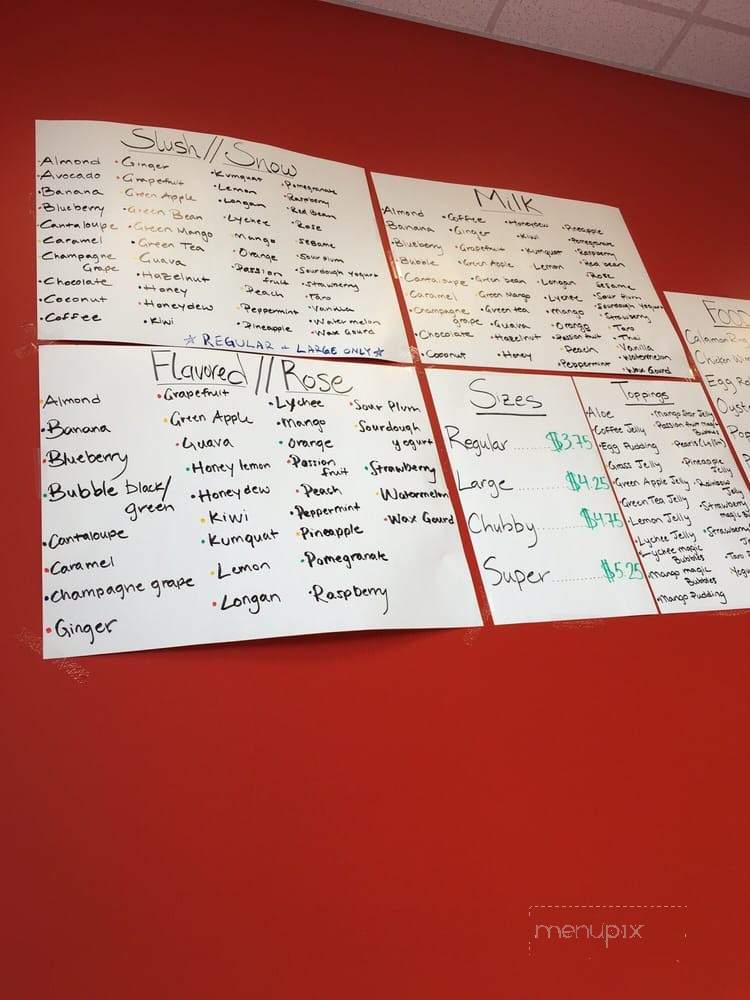 Slush // Snow
Almond
Avocado
Banana
Blueberry
Cantaloupe
Caramel
Champagne
Grape
Chocolate
Coconut
Coffee
Ginger
Grapefruit
Green Apple
Green Bean
Green Mango
Green Tea
Guava
Hazelnut
Honey
Honeydew
Kiwi
Kumquat
Lemon
Longan
Lychee
Mango
Orange
Passion
fruit
Peach
Peppermint
Pineapple
Pomegranate
Raspberry
Red Bean
Rose
Sesame
Sour Plum
Sourdough Yogurt
Strawberry
Taro
Vanilla
Watermelon
Wax Gourd
☆ REGULAR - LARGE ONLY ☆
Milk
Almond
Banana
Blueberry
Bubble
Cantaloupe
Caramel
Champagne
grape
Chocolate
Coconut
Coffee
Ginger
Grapefruit
Green Apple
Green bean
Green Mango
Green tea
Guava
Hazelnut
Honey
Honeydew
Kiwi
Kumquat
Lemon
Longan
Lychee
Mango
Orange
Passion fruit
Peach
Peppermint
Pineapple
Pomegranate
Raspberry
Red bean
Rose
Sesame
Sour Plum
Sourdough Yogurt
Strawberry
Taro
Thai
Vanilla
Watermelon
Wax Gourd
Flavored // Rose
Almond
Banana
Blueberry
Bubble black/
green
Cantaloupe
Caramel
Champagne grape
Ginger
Grapefruit
Green Apple
Guava
Honey lemon
Honeydew
Kiwi
Kumquat
Lemon
Longan
Lychee
Mango
Orange
Passion
fruit
Peach
Peppermint
Pineapple
Pomegranate
Raspberry
Sour Plum
Sourdough
yogurt
Strawberry
Watermelon
Wax Gourd
Sizes
Regular ........ $3.75
Large ........ $4.25
Chubby ........ $4.75
Super ........ $5.25
Toppings
Aloe
Coffee Jelly
Egg Pudding
Grass Jelly
Green Apple Jelly
Green Tea Jelly
Lemon Jelly
Lychee Jelly
Lychee magic
Bubbles
Mango magic
Bubbles
Mango Pudding
Mango Star Jelly
Passion fruit magic
Bubbles
Pearls
Pineapple
Jelly
Rainbow
Jelly
Strawberry
magic
Strawberry
Taro
Food
Calamari
Chicken
Egg
Pop
menupix